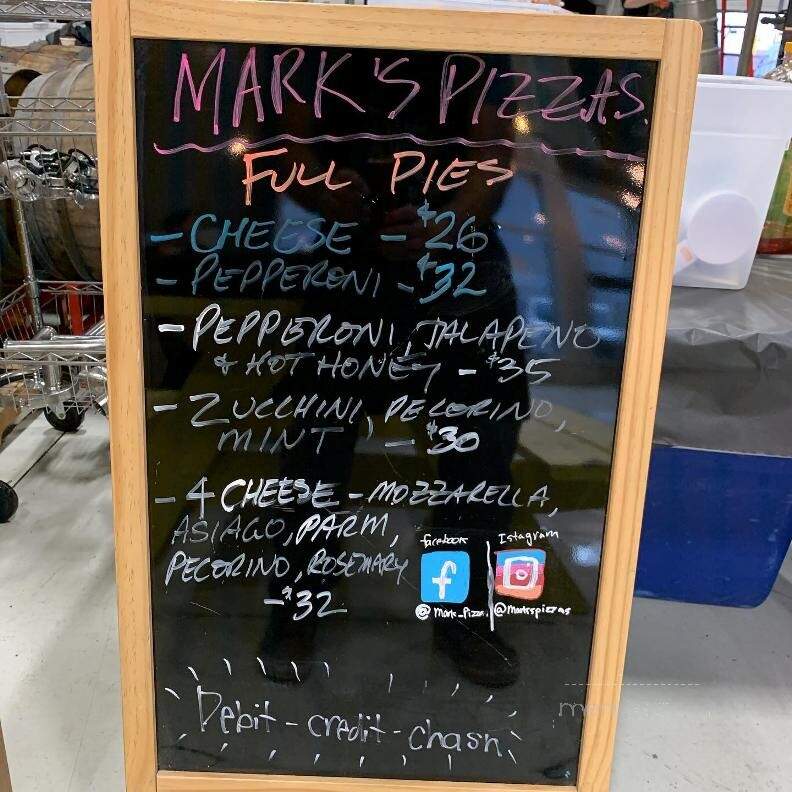 MARK'S PIZZAS.
FULL PIES
- CHEESE - $26
- PEPPERONI - $32
- PEPPERONI, JALAPENO
& HOT HONEY - $35
- ZUCCHINI, PECORINO,
MINT - $30
- 4 CHEESE - MOZZARELLA,
ASIAGO, PARM,
PECORINO, ROSEMARY
- $32
facebook
Istagram
f
@ mark_Pizza.
@markspizzas
Debit - credit - chash